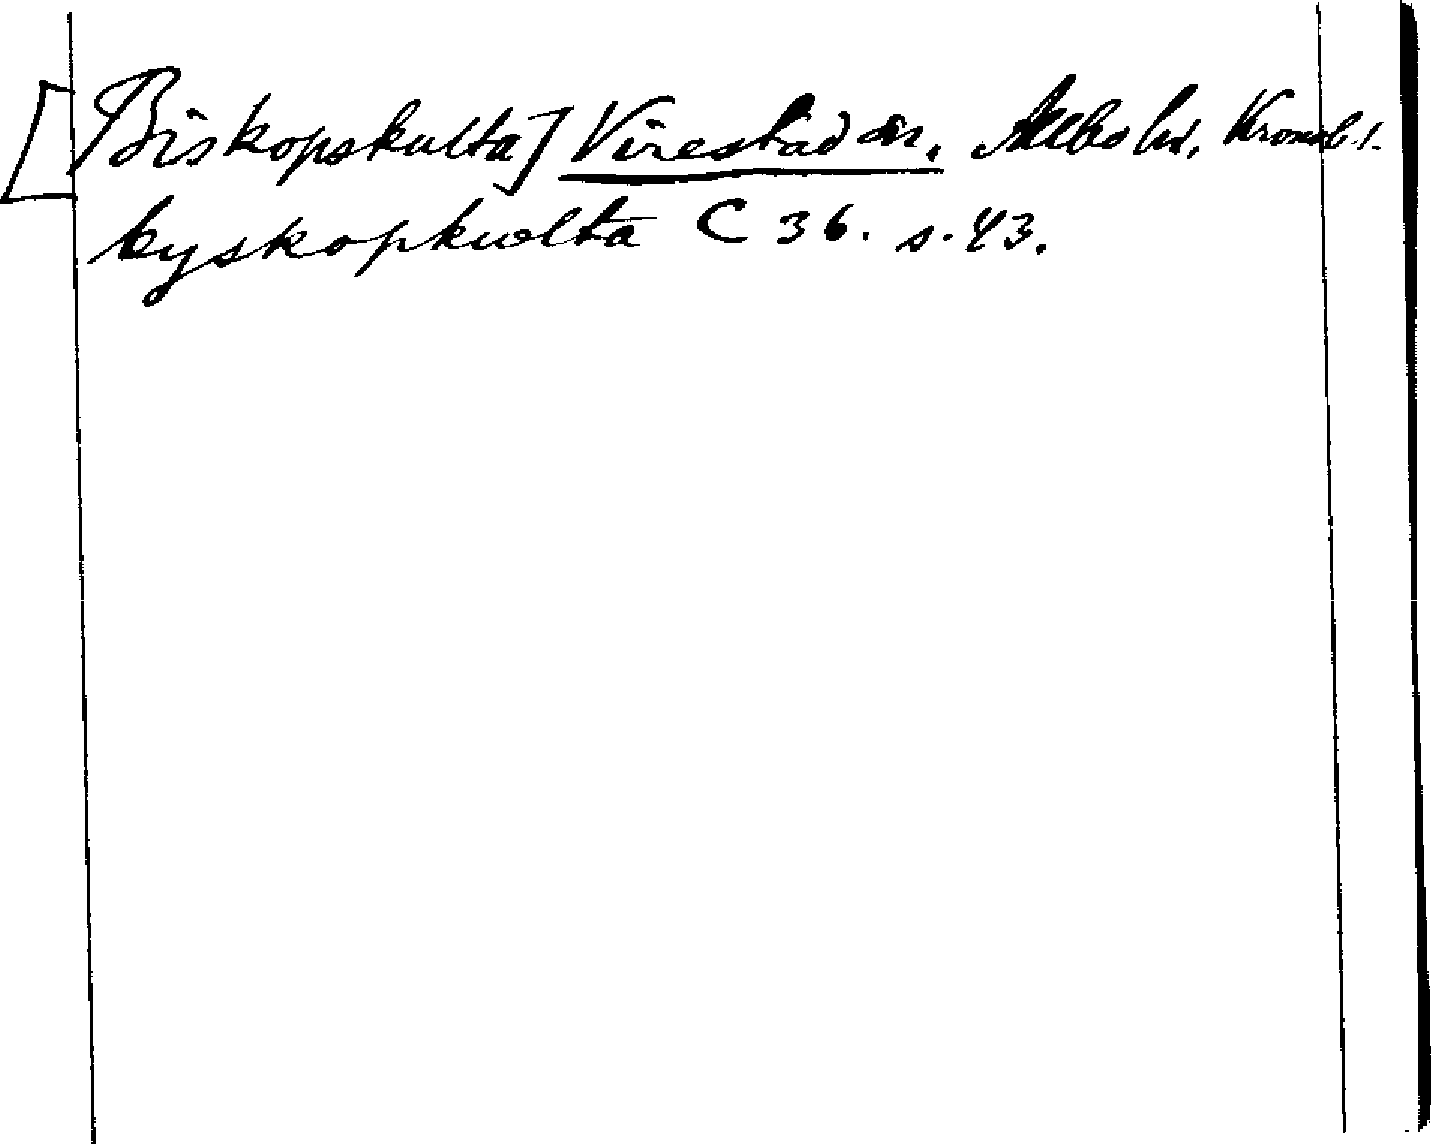 [Biskopskulta] Virestad sn. Allbo hd. Kronob. l.
byskopkwlta C 36. s. 43.